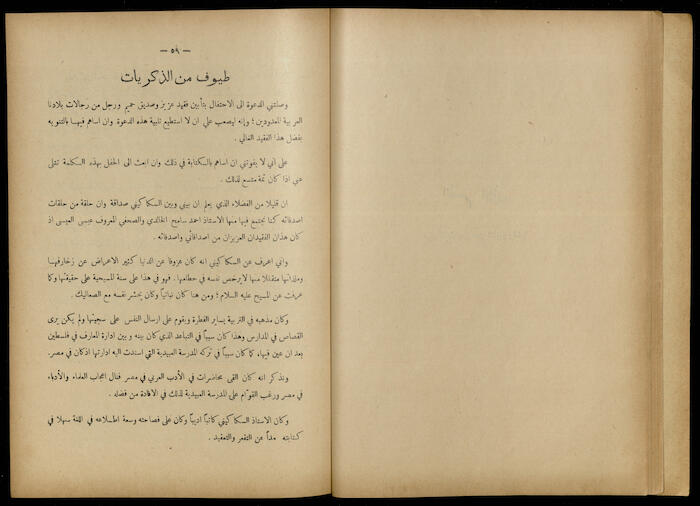 — ٥٩ —
طيوف من الذكريات
وصلتني الدعوة الى الاحتفال بتأبين فقيد عزيز وصديق حميم ورجل من رجالات بلادنا
العربية المعدودين ؛ وإنه ليصعب علي ان لا استطيع تلبية هذه الدعوة وان اساهم فيهـا بالتنويه
بفضل هذا الفقيد الغالي .
على اني لا يفوتني ان اساهم بالكتابة في ذلك وان ابعث الى الحفل بهذه الكلمة تتلى
عني اذا كان ثمة متسع لذلك .
ان قليلا من الفضلاء الذي يعلم ان بيني وبين السكاكيني صداقة وان حلقة من حلقات
اصدقائه كنا نجتمع فيها منها الاستاذ احمد سامح الخالدي والصحفي المعروف عيسى العيسى اذ
كان هذان الفقيدان العزيزان من اصدقائي واصدقائه .
واني اعرف عن السكاكيني انه كان عزوفا عن الدنيا كثير الاعراض عن زخارفهـا
وملذاتها متقللا منها لا يرخص نفسه في حطامها . فهو في هذا على سنة المسيحية على حقيقتها وكما
عرفت عن المسيح عليه السلام ؛ ومن هنا كان نباتياً وكان يحشر نفسه مع الصعاليك .
وكان مذهبه في التربية يساير الفطرة ويقوم على ارسال النفس على سجيتها ولم يكن يرى
القصاص في المدارس وهذا كان سبباً في التباعد الذي كان بينه و بين ادارة المعارف في فلسطين
بعد ان عين فيها، كما كان سبباً في تركه المدرسة العبيدية التي اسندت اليه ادارتها اذ كان في مصر.
ونذكر انه كان القى محاضرات في الأدب العربي في مصر فنال اعجاب العلماء والأدباء
في مصر ورغب القوّام على المدرسة العبيدية لذلك في الافادة من فضله .
وكان الاستاذ السكاكيني كاتباً اديباً وكان على فصاحته وسعة اطلاعه في اللغة سهلا في
كتابته عن التقعر والتعقيد .